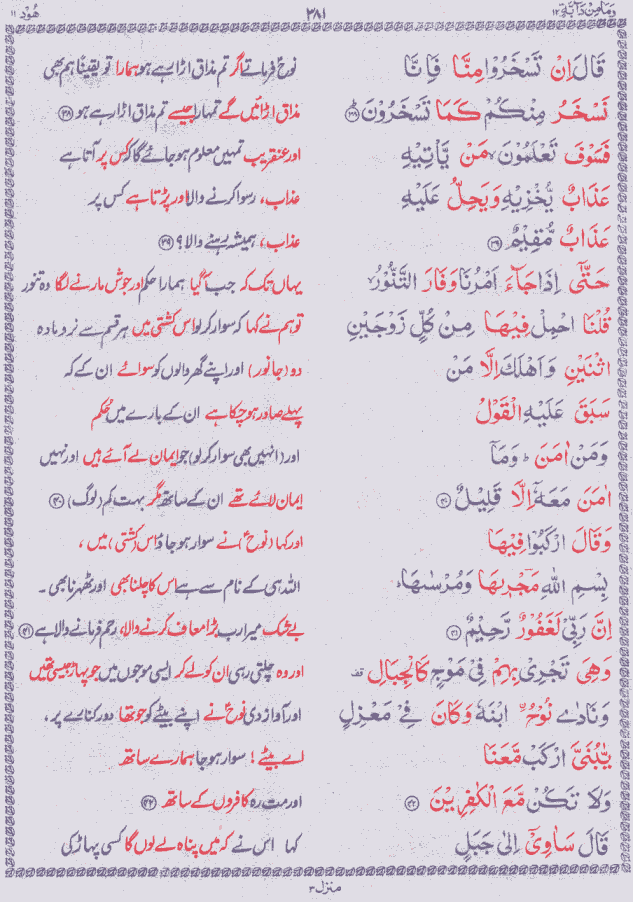 وَمَا مِنْ دَآبَّةٍ ١٢ ٣٨١ هُوْد ١١
قَالَ اِنْ تَسْخَرُوْا مِنَّا فَاِنَّا نوحؑ فرماتے اگر تم مذاق اڑا رہے ہو ہمارا تو یقینًا ہم بھی
نَسْخَرُ مِنْكُمْ كَمَا تَسْخَرُوْنَ ﴿۳۸﴾ مذاق اڑائیں گے تمہارا جیسے تم مذاق اڑا رہے ہو ﴿۳۸﴾
فَسَوْفَ تَعْلَمُوْنَ مَنْ يَّاْتِيْهِ اور عنقریب تمہیں معلوم ہو جائے گا کہ کس پر آتا ہے
عَذَابٌ يُّخْزِيْهِ وَيَحِلُّ عَلَيْهِ عذاب، رسوا کرنے والا اور پڑتا ہے کس پر
عَذَابٌ مُّقِيْمٌ ﴿۳۹﴾ عذاب، ہمیشہ رہنے والا؟ ﴿۳۹﴾
حَتّٰٓى اِذَا جَآءَ اَمْرُنَا وَفَارَ التَّنُّوْرُ یہاں تک کہ جب آگیا ہمارا حکم اور جوش مارنے لگا وہ تنور
قُلْنَا احْمِلْ فِيْهَا مِنْ كُلٍّ زَوْجَيْنِ تو ہم نے کہا کہ سوار کرلو اس کشتی میں ہر قسم سے نر و مادہ
اثْنَيْنِ وَاَهْلَكَ اِلَّا مَنْ دو (جانور) اور اپنے گھر والوں کو سوائے ان کے کہ
سَبَقَ عَلَيْهِ الْقَوْلُ پہلے صادر ہو چکا ہے ان کے بارے میں حکم
وَمَنْ اٰمَنَ ؕ وَمَآ اور (انہیں بھی سوار کرلو) جو ایمان لے آئے ہیں اور نہیں
اٰمَنَ مَعَهٗٓ اِلَّا قَلِيْلٌ ﴿۴۰﴾ ایمان لائے تھے ان کے ساتھ مگر بہت کم (لوگ) ﴿۴۰﴾
وَقَالَ ارْكَبُوْا فِيْهَا اور کہا (نوحؑ) نے سوار ہو جاؤ اس (کشتی) میں،
بِسْمِ اللّٰهِ مَجْرٖىهَا وَمُرْسٰىهَا ؕ اللہ ہی کے نام سے ہے اس کا چلنا بھی اور ٹھہرنا بھی۔
اِنَّ رَبِّيْ لَغَفُوْرٌ رَّحِيْمٌ ﴿۴۱﴾ بے شک میرا رب بڑا معاف کرنے والا، رحم فرمانے والا ہے ﴿۴۱﴾
وَهِيَ تَجْرِيْ بِهِمْ فِيْ مَوْجٍ كَالْجِبَالِ اور وہ چلتی رہی ان کو لے کر ایسی موجوں میں جو پہاڑ جیسی تھیں
وَنَادٰى نُوْحُ ۨ ابْنَهٗ وَكَانَ فِيْ مَعْزِلٍ اور آواز دی نوحؑ نے اپنے بیٹے کو جو تھا دور کنارے پر،
يّٰبُنَيَّ ارْكَبْ مَّعَنَا اے بیٹے! سوار ہو جا ہمارے ساتھ
وَلَا تَكُنْ مَّعَ الْكٰفِرِيْنَ ﴿۴۲﴾ اور مت رہ کافروں کے ساتھ ﴿۴۲﴾
قَالَ سَاٰوِيْٓ اِلٰى جَبَلٍ کہا اس نے کہ میں پناہ لے لوں گا کسی پہاڑ کی
منزل ٣